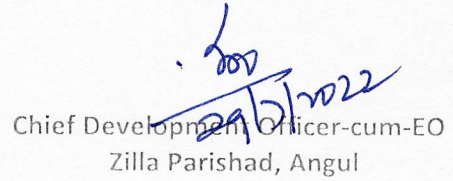 29/7/2022
Chief Development Officer-cum-EO
Zilla Parishad, Angul